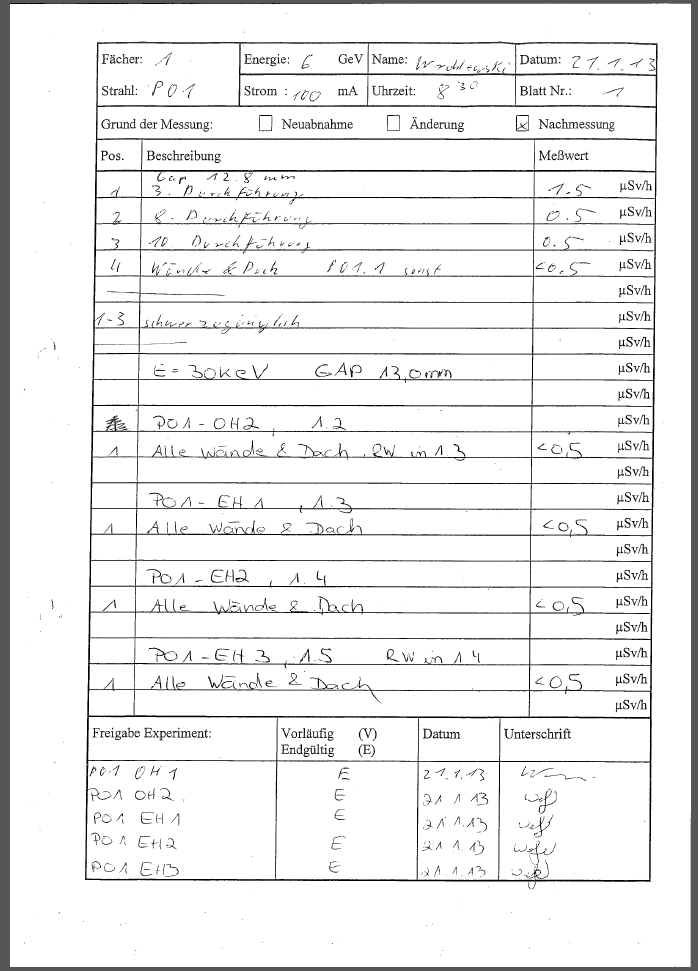 Fächer: 1 Energie: 6 GeV Name: Wroblewski Datum: 21.1.13
Strahl: P01 Strom : 100 mA Uhrzeit: 8 30 Blatt Nr.: 1
Grund der Messung: Neuabnahme Änderung x Nachmessung
Pos. Beschreibung Meßwert
Gap 12.8 mm
1 3. Durchführung 1.5 µSv/h
2 8. Durchführung 0.5 µSv/h
3 10 Durchführung 0.5 µSv/h
4 Wände & Dach P01.1 sonst <0.5 µSv/h
µSv/h
1-3 schwer zugänglich µSv/h
µSv/h
E = 30keV GAP 13,0mm µSv/h
µSv/h
P01-OH2, 1.2 µSv/h
1 Alle Wände & Dach, RW in 1.3 <0,5 µSv/h
µSv/h
P01-EH1, 1.3 µSv/h
1 Alle Wände & Dach <0,5 µSv/h
µSv/h
P01-EH2, 1.4 µSv/h
1 Alle Wände & Dach <0,5 µSv/h
µSv/h
P01-EH3, 1.5 RW in 1.4 µSv/h
1 Alle Wände & Dach <0,5 µSv/h
µSv/h
Freigabe Experiment: Vorläufig (V) Datum Unterschrift
Endgültig (E)
P01 OH1 E 21.1.13
P01 OH2 E 21.1.13
P01 EH1 E 21.1.13
P01 EH2 E 21.1.13
P01 EH3 E 21.1.13